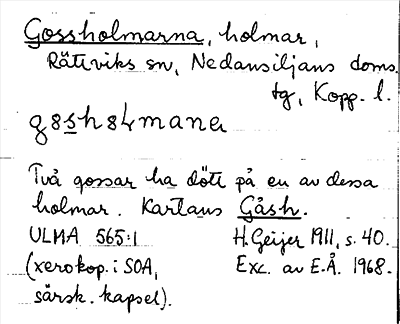 Gossholmarna, holmar,
Rättviks sn, Nedansiljans doms.
tg, Kopp. l.
Två gossar ha dött på en av dessa
holmar. Kartans Gåsh.
ULMA 565:1 H. Geijer 1911, s. 40.
(xerokop. i SOA, Exc. av E.Å. 1968.
särsk. kapsel).